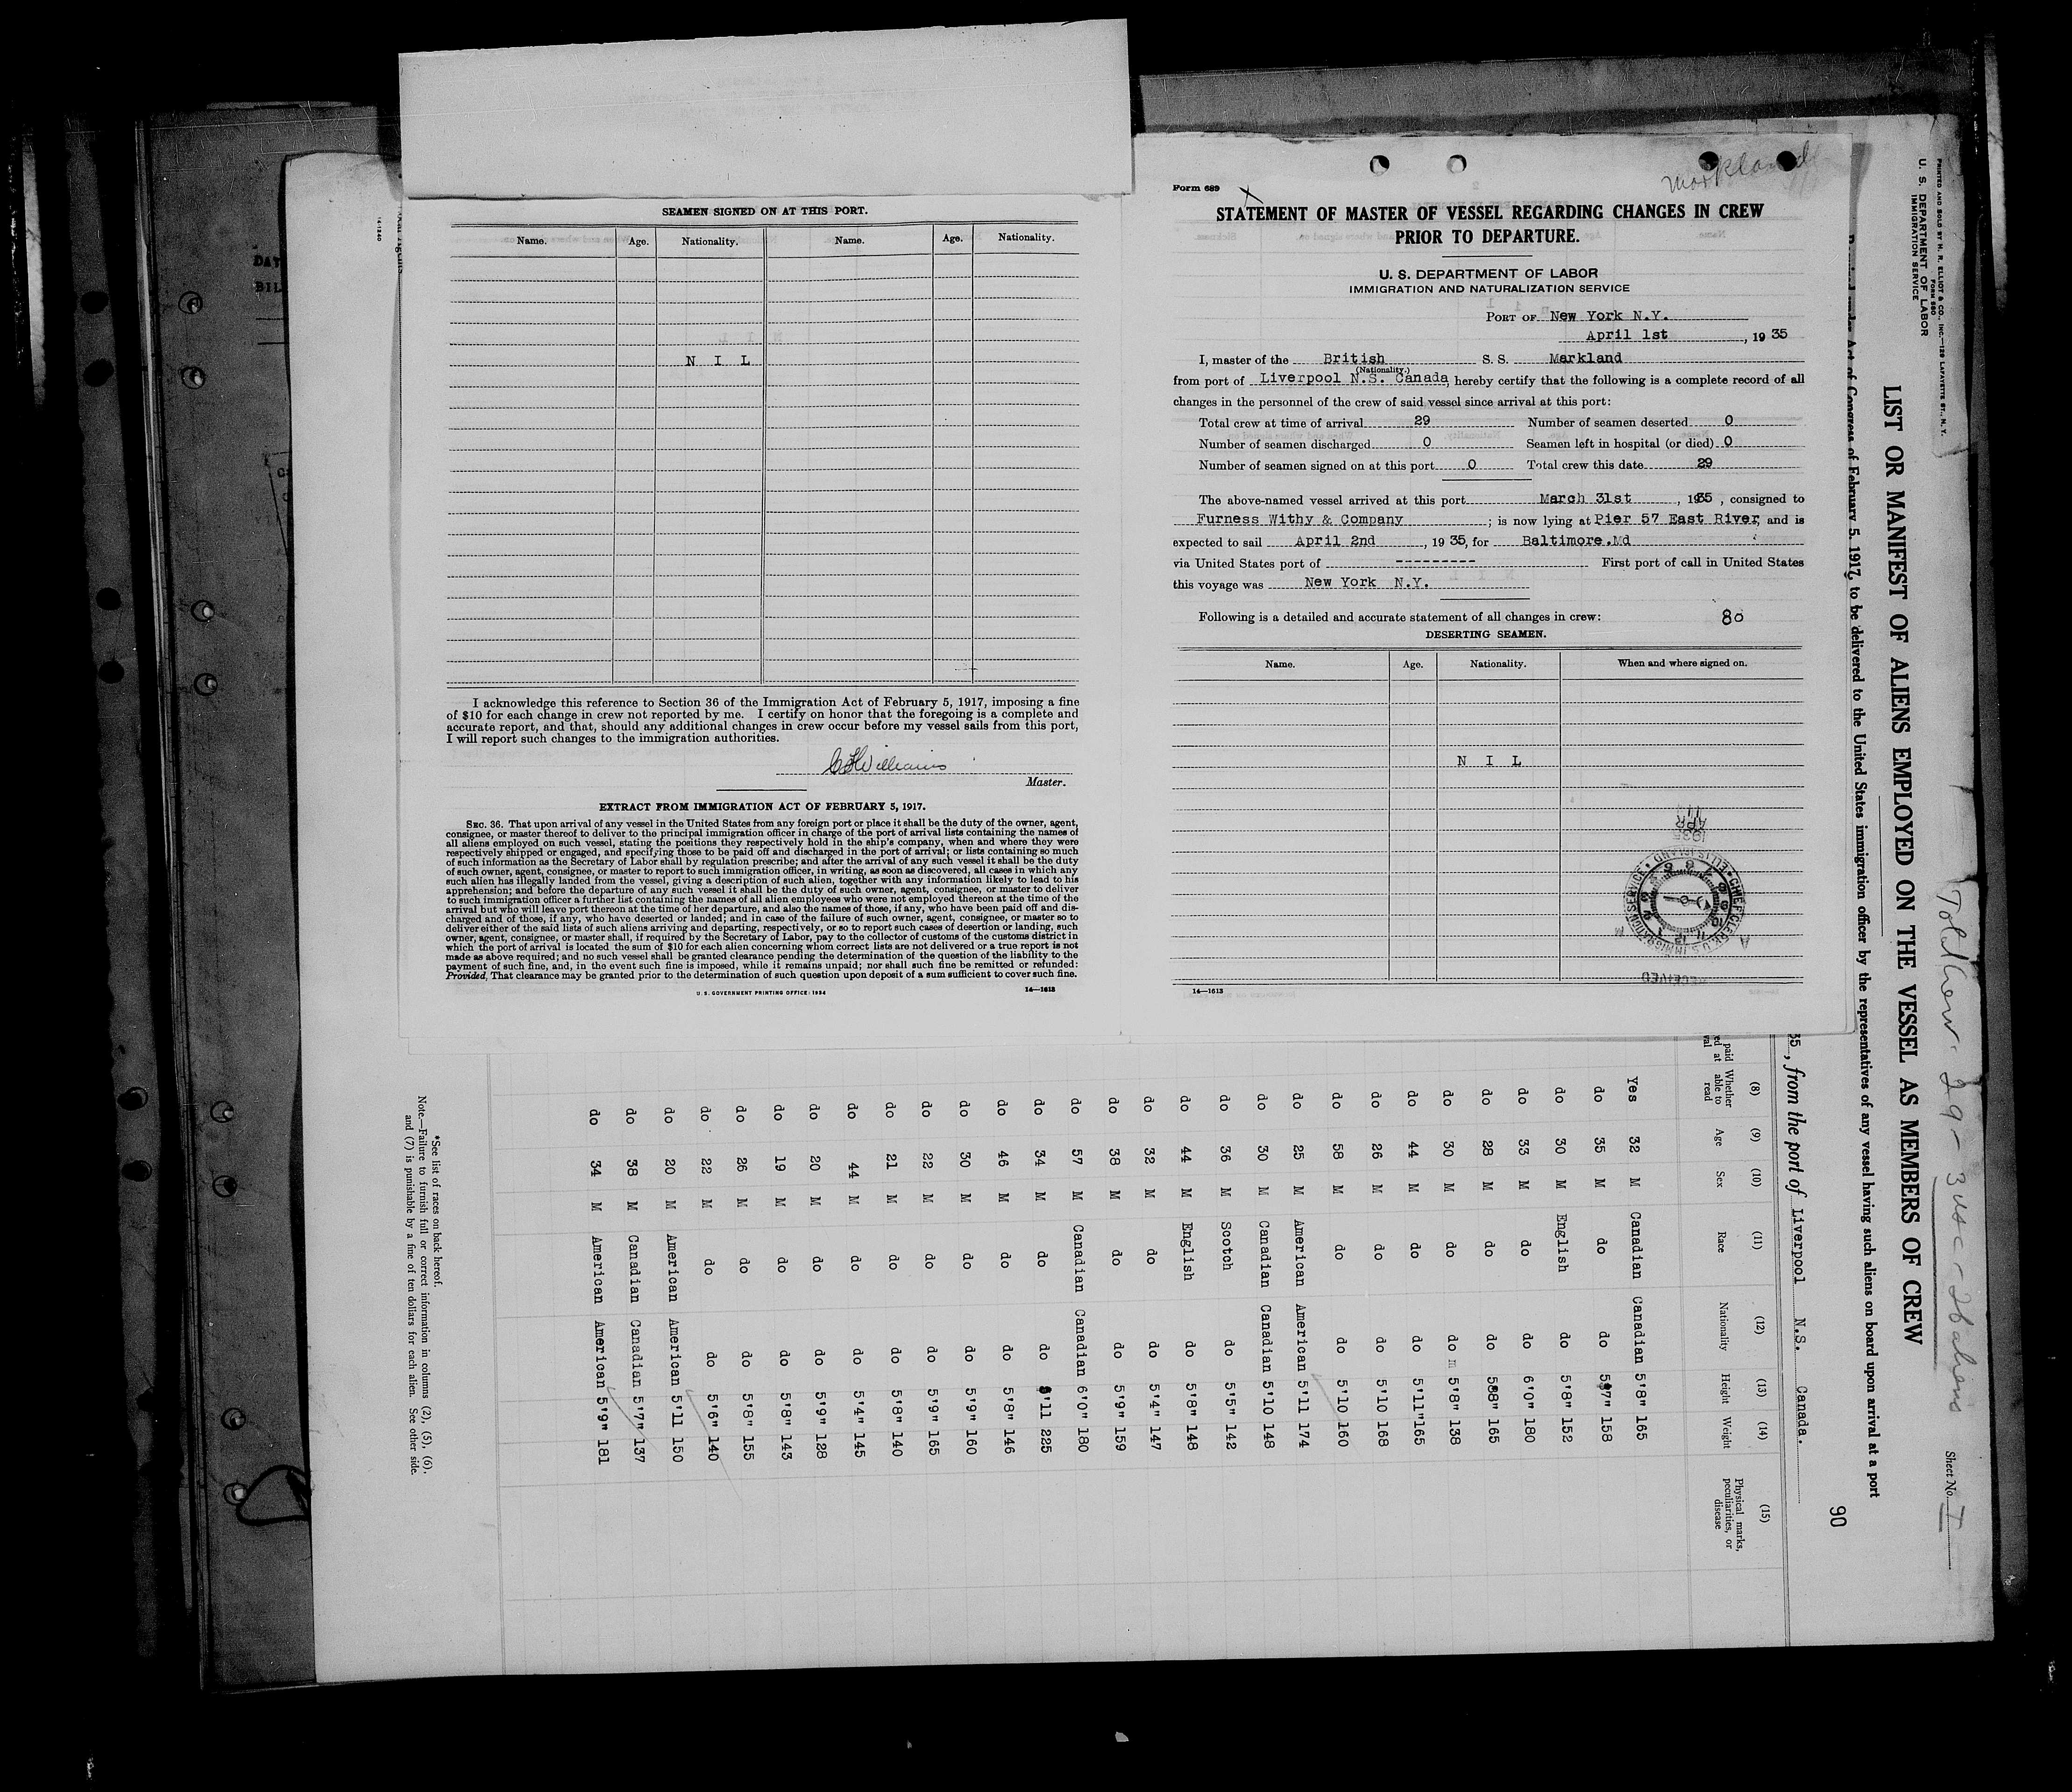 SEAMEN SIGNED ON AT THIS PORT.
Name. Age. Nationality. Name. Age. Nationality.
N I L
I acknowledge this reference to Section 36 of the Immigration Act of February 5, 1917, imposing a fine
of $10 for each change in crew not reported by me. I certify on honor that the foregoing is a complete and
accurate report, and that, should any additional changes in crew occur before my vessel sails from this port,
I will report such changes to the immigration authorities.
Williams
Master.
EXTRACT FROM IMMIGRATION ACT OF FEBRUARY 5, 1917.
SEC. 36. That upon arrival of any vessel in the United States from any foreign port or place it shall be the duty of the owner, agent,
consignee, or master thereof to deliver to the principal immigration officer in charge of the port of arrival lists containing the names of
all aliens employed on such vessel, stating the positions they respectively hold in the ship's company, when and where they were
respectively shipped or engaged, and specifying those to be paid off and discharged in the port of arrival; or lists containing so much
of such information as the Secretary of Labor shall by regulation prescribe; and after the arrival of any such vessel it shall be the duty
of such owner, agent, consignee, or master to report to such immigration officer, in writing, as soon as discovered, all cases in which any
such alien has illegally landed from the vessel, giving a description of such alien, together with any information likely to lead to his
apprehension; and before the departure of any such vessel it shall be the duty of such owner, agent, consignee, or master to deliver
to such immigration officer a further list containing the names of all alien employees who were not employed thereon at the time of the
arrival but who will leave port thereon at the time of her departure, and also the names of those, if any, who have been paid off and dis-
charged and of those, if any, who have deserted or landed; and in case of the failure of such owner, agent, consignee, or master so to
deliver either of the said lists of such aliens arriving and departing, respectively, or so to report such cases of desertion or landing, such
owner, agent, consignee, or master shall, if required by the Secretary of Labor, pay to the collector of customs of the customs district in
which the port of arrival is located the sum of $10 for each alien concerning whom correct lists are not delivered or a true report is not
made as above required; and no such vessel shall be granted clearance pending the determination of the question of the liability to the
payment of such fine, and, in the event such fine is imposed, while it remains unpaid; nor shall such fine be remitted or refunded:
Provided, That clearance may be granted prior to the determination of such question upon deposit of a sum sufficient to cover such fine.
U. S. GOVERNMENT PRINTING OFFICE: 1934 14—1613
Markland
Form 689
STATEMENT OF MASTER OF VESSEL REGARDING CHANGES IN CREW
PRIOR TO DEPARTURE.
U. S. DEPARTMENT OF LABOR
IMMIGRATION AND NATURALIZATION SERVICE
PORT OF New York N.Y.
April 1st, 19 35
I, master of the British S. S. Markland
(Nationality.)
from port of Liverpool N.S. Canada, hereby certify that the following is a complete record of all
changes in the personnel of the crew of said vessel since arrival at this port:
Total crew at time of arrival 29 Number of seamen deserted 0
Number of seamen discharged 0 Seamen left in hospital (or died) 0
Number of seamen signed on at this port 0 Total crew this date 29
The above-named vessel arrived at this port March 31st, 1935, consigned to
Furness Withy & Company; is now lying at Pier 57 East River, and is
expected to sail April 2nd, 19 35, for Baltimore.Md
via United States port of --------- First port of call in United States
this voyage was New York N.Y.
Following is a detailed and accurate statement of all changes in crew: 80
DESERTING SEAMEN.
Name. Age. Nationality. When and where signed on.
N I L
1935
APR
CHIEF CLERK U.S. IMMIGRATION SERVICE ELLIS ISLAND
RECEIVED
14—1613
PRINTED AND SOLD BY H. R. ELLIOT & CO., INC.—129 LAFAYETTE ST., N. Y.
FORM 680
U. S. DEPARTMENT OF LABOR
IMMIGRATION SERVICE
Total Crew 29 - 3 USC - 26 aliens
Sheet No. I
LIST OR MANIFEST OF ALIENS EMPLOYED ON THE VESSEL AS MEMBERS OF CREW
Act of Congress of February 5, 1917, to be delivered to the United States immigration officer by the representatives of any vessel having such aliens on board upon arrival at a port
90
35, from the port of Liverpool N.S. Canada.
(8) (9) (10) (11) (12) (13) (14) (15)
Whether able to read Age Sex Race Nationality Height Weight Physical marks, peculiarities, or disease
Yes 32 M Canadian Canadian 5'8" 165
do 35 M do do 5'7" 158
do 30 M English do 5'8" 152
do 33 M do do 6'0" 180
do 28 M do do 5'8" 165
do 30 M do do 5'8" 138
do 44 M do do 5'11" 165
do 26 M do do 5'10 168
do 58 M do do 5'10 160
do 25 M American American 5'11 174
do 30 M Canadian Canadian 5'10 148
do 36 M Scotch do 5'5" 142
do 44 M English do 5'8" 148
do 32 M do do 5'4" 147
do 38 M do do 5'9" 159
do 57 M Canadian Canadian 6'0" 180
do 34 M do do 5'11 225
do 46 M do do 5'8" 146
do 30 M do do 5'9" 160
do 22 M do do 5'9" 165
do 21 M do do 5'8" 140
do 44 M do do 5'4" 145
do 20 M do do 5'9" 128
do 19 M do do 5'8" 143
do 26 M do do 5'8" 155
do 22 M do do 5'6" 140
do 20 M American American 5'11 150
do 38 M Canadian Canadian 5'7" 137
do 34 M American American 5'9" 181
*See list of races on back hereof.
Note.—Failure to furnish full or correct information in columns (2), (5), (6),
and (7) is punishable by a fine of ten dollars for each alien. See other side.
14-1240